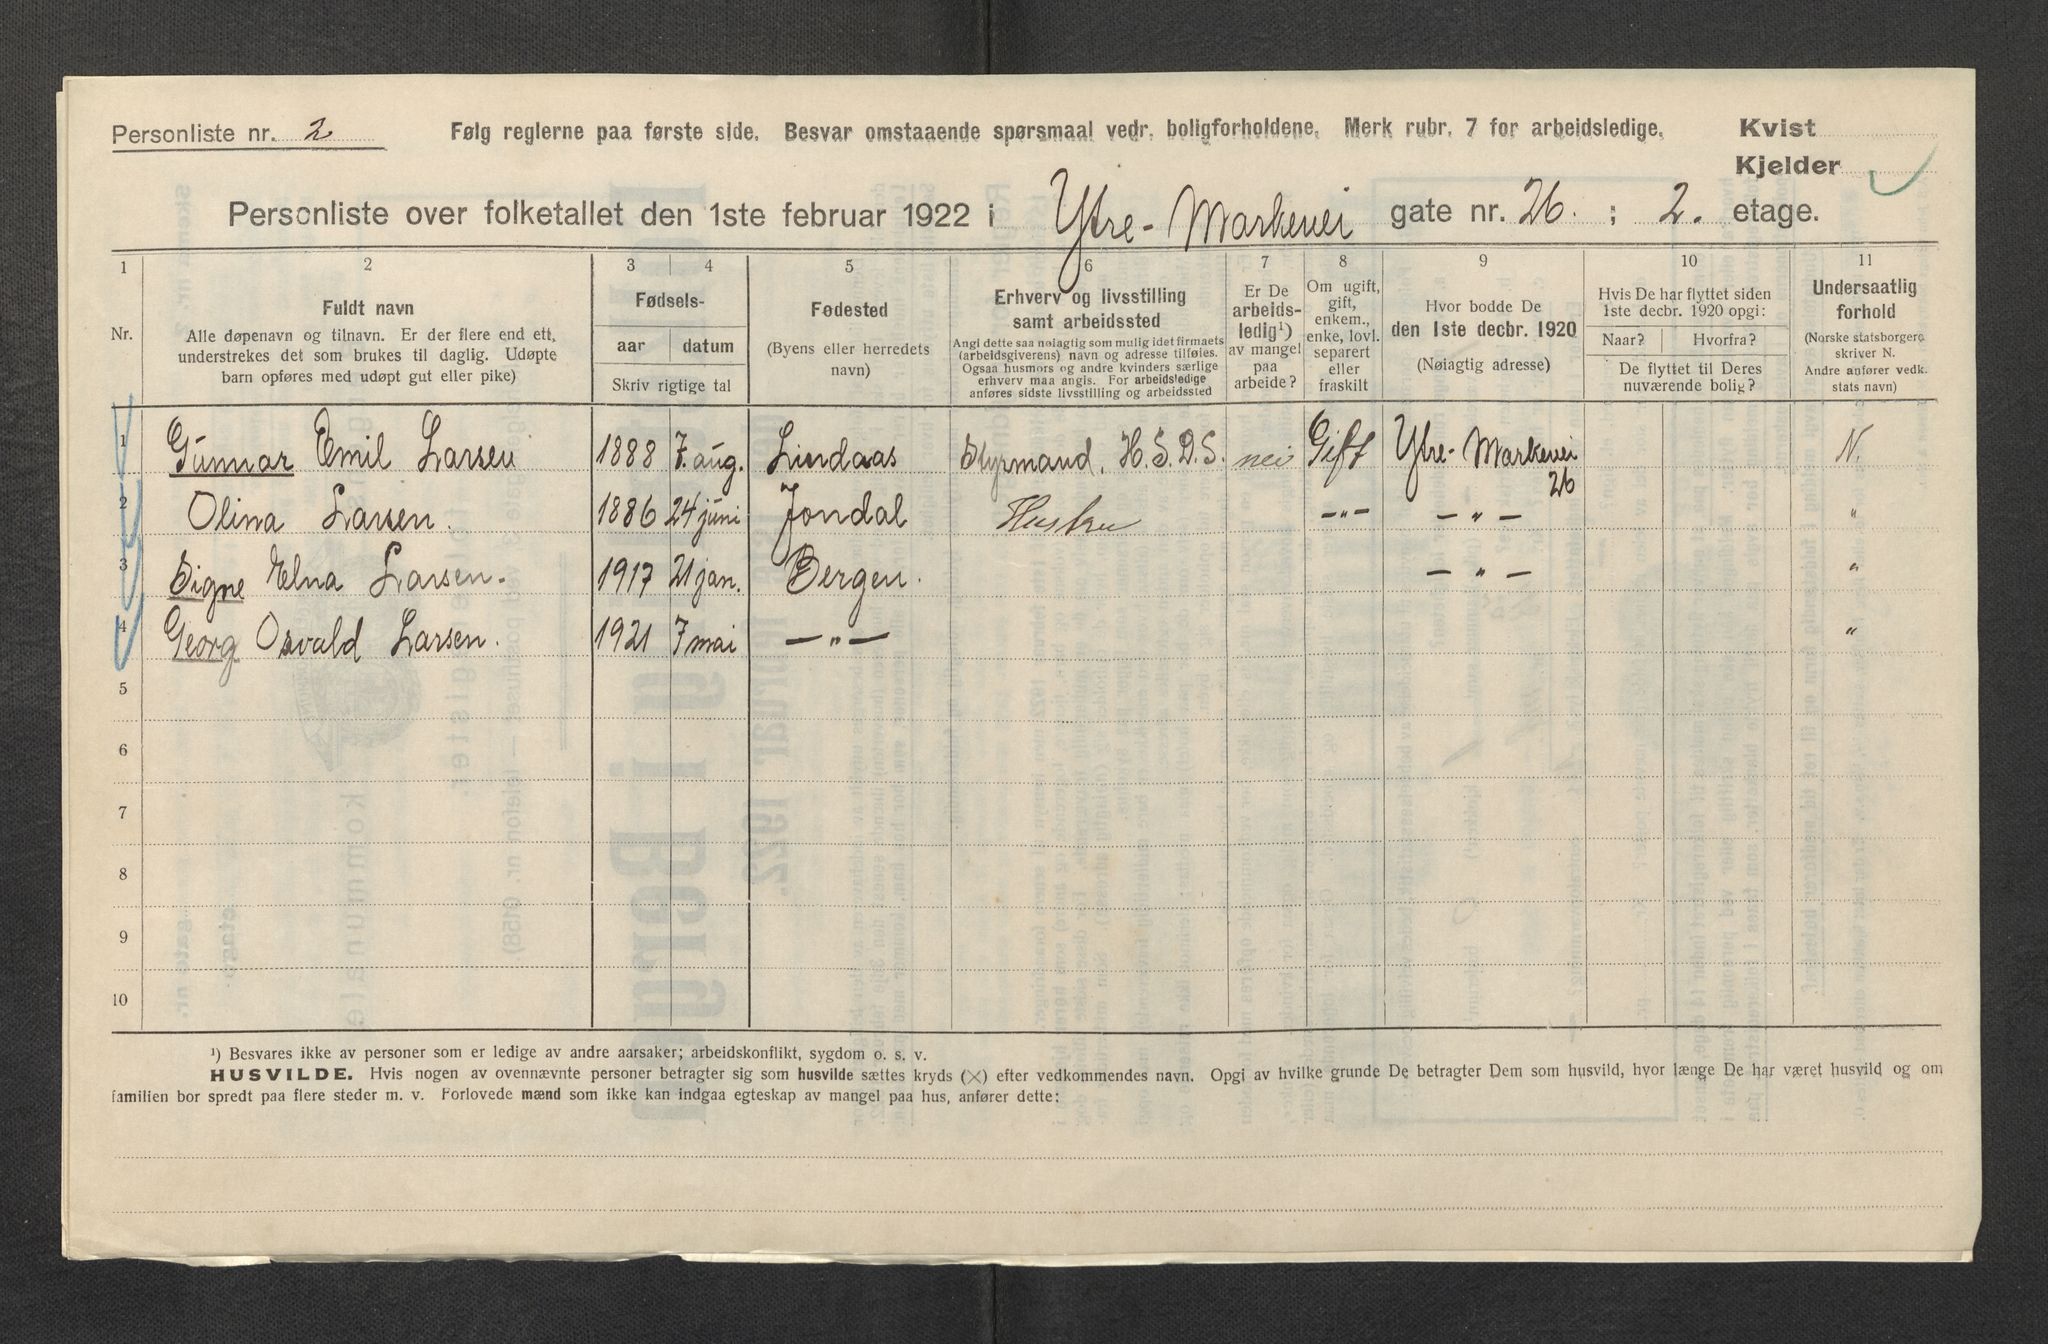 Personliste nr. 2 Følg reglerne paa første side. Besvar omstaaende spørsmaal vedr. boligforholdene. Merk rubr. 7 for arbeidsledige. Kvist
Kjelder
Personliste over folketallet den 1ste februar 1922 i Ytre-Markevei gate nr. 26. ; 2. etage.
1 2 3 4 5 6 7 8 9 10 11
Nr.
Fuldt navn
Alle døpenavn og tilnavn. Er der flere end ett,
understrekes det som brukes til daglig. Udøpte
barn opføres med udøpt gut eller pike)
Fødsels-
aar datum
Skriv rigtige tal
Fødested
(Byens eller herredets
navn)
Erhverv og livsstilling
samt arbeidssted
Angi dette saa nøiagtig som mulig idet firmaets
(arbeidsgiverens) navn og adresse tilføies.
Ogsaa husmors og andre kvinders særlige
erhverv maa angis. For arbeidsledige
anføres sidste livsstilling og arbeidssted
Er De
arbeids-
ledig¹)
av mangel
paa
arbeide?
Om ugift,
gift,
enkem.,
enke, lovl.
separert
eller
fraskilt
Hvor bodde De
den 1ste decbr. 1920
(Nøiagtig adresse)
Hvis De har flyttet siden
1ste decbr. 1920 opgi:
Naar? Hvorfra?
De flyttet til Deres
nuværende bolig?
Undersaatlig
forhold
(Norske statsborgere
skriver N.
Andre anfører vedk.
stats navn)
1 Gunnar Emil Larsen 1888 7. aug. Lindaas Styrmand. H.S.D.S. nei Gift Ytre-Markevei 26 N.
2 Olina Larsen. 1886 24 juni Jondal Hustru —"— — " — "
3 Signe Elna Larsen. 1917 21 jan. Bergen. — " — "
4 Georg Osvald Larsen. 1921 7 mai — " — "
5
6
7
8
9
10
¹) Besvares ikke av personer som er ledige av andre aarsaker; arbeidskonflikt, sygdom o. s. v.
HUSVILDE. Hvis nogen av ovennævnte personer betragter sig som husvilde sættes kryds (×) efter vedkommendes navn. Opgi av hvilke grunde De betragter Dem som husvild, hvor længe De har været husvild og om
familien bor spredt paa flere steder m. v. Forlovede mænd som ikke kan indgaa egteskap av mangel paa hus, anfører dette: